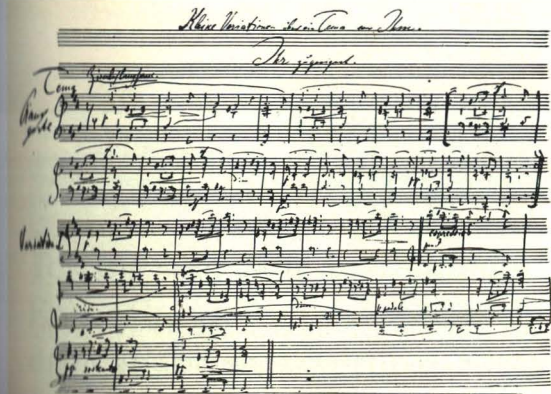 Kleine Variationen über ein Tema von Ihm.
Ihr zugeeignet.
Tema Ziemlich langsam.
Piano
forte
Variation 1.
espressivo